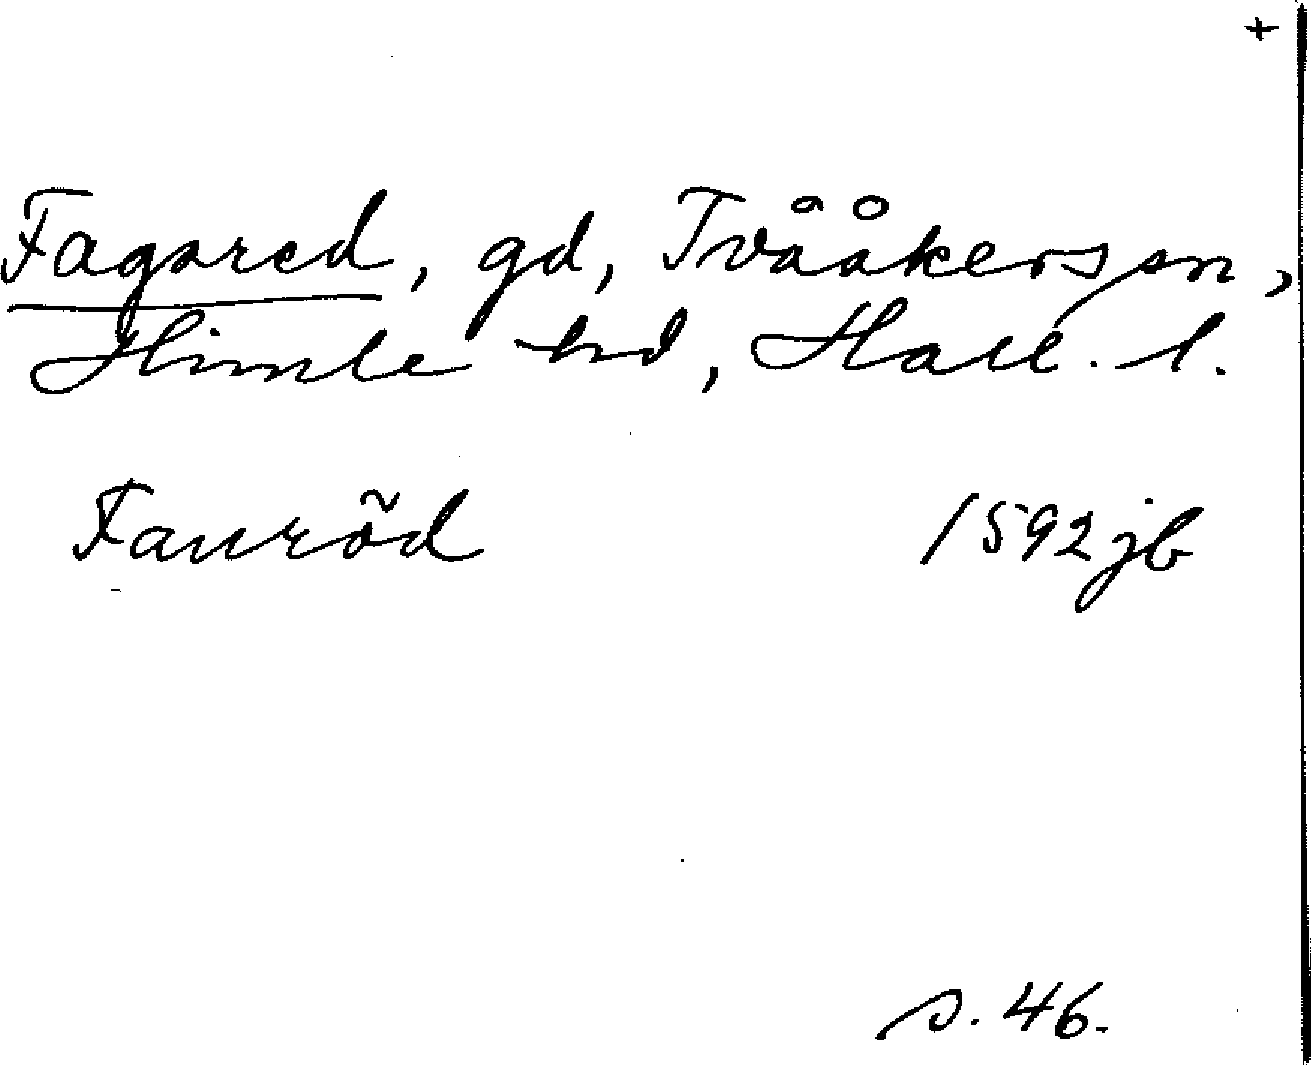 +
Fagared, gd, Tvååkers sn,
Himle hd, Hall. l.
Fauröd 1592 jb
s. 46.